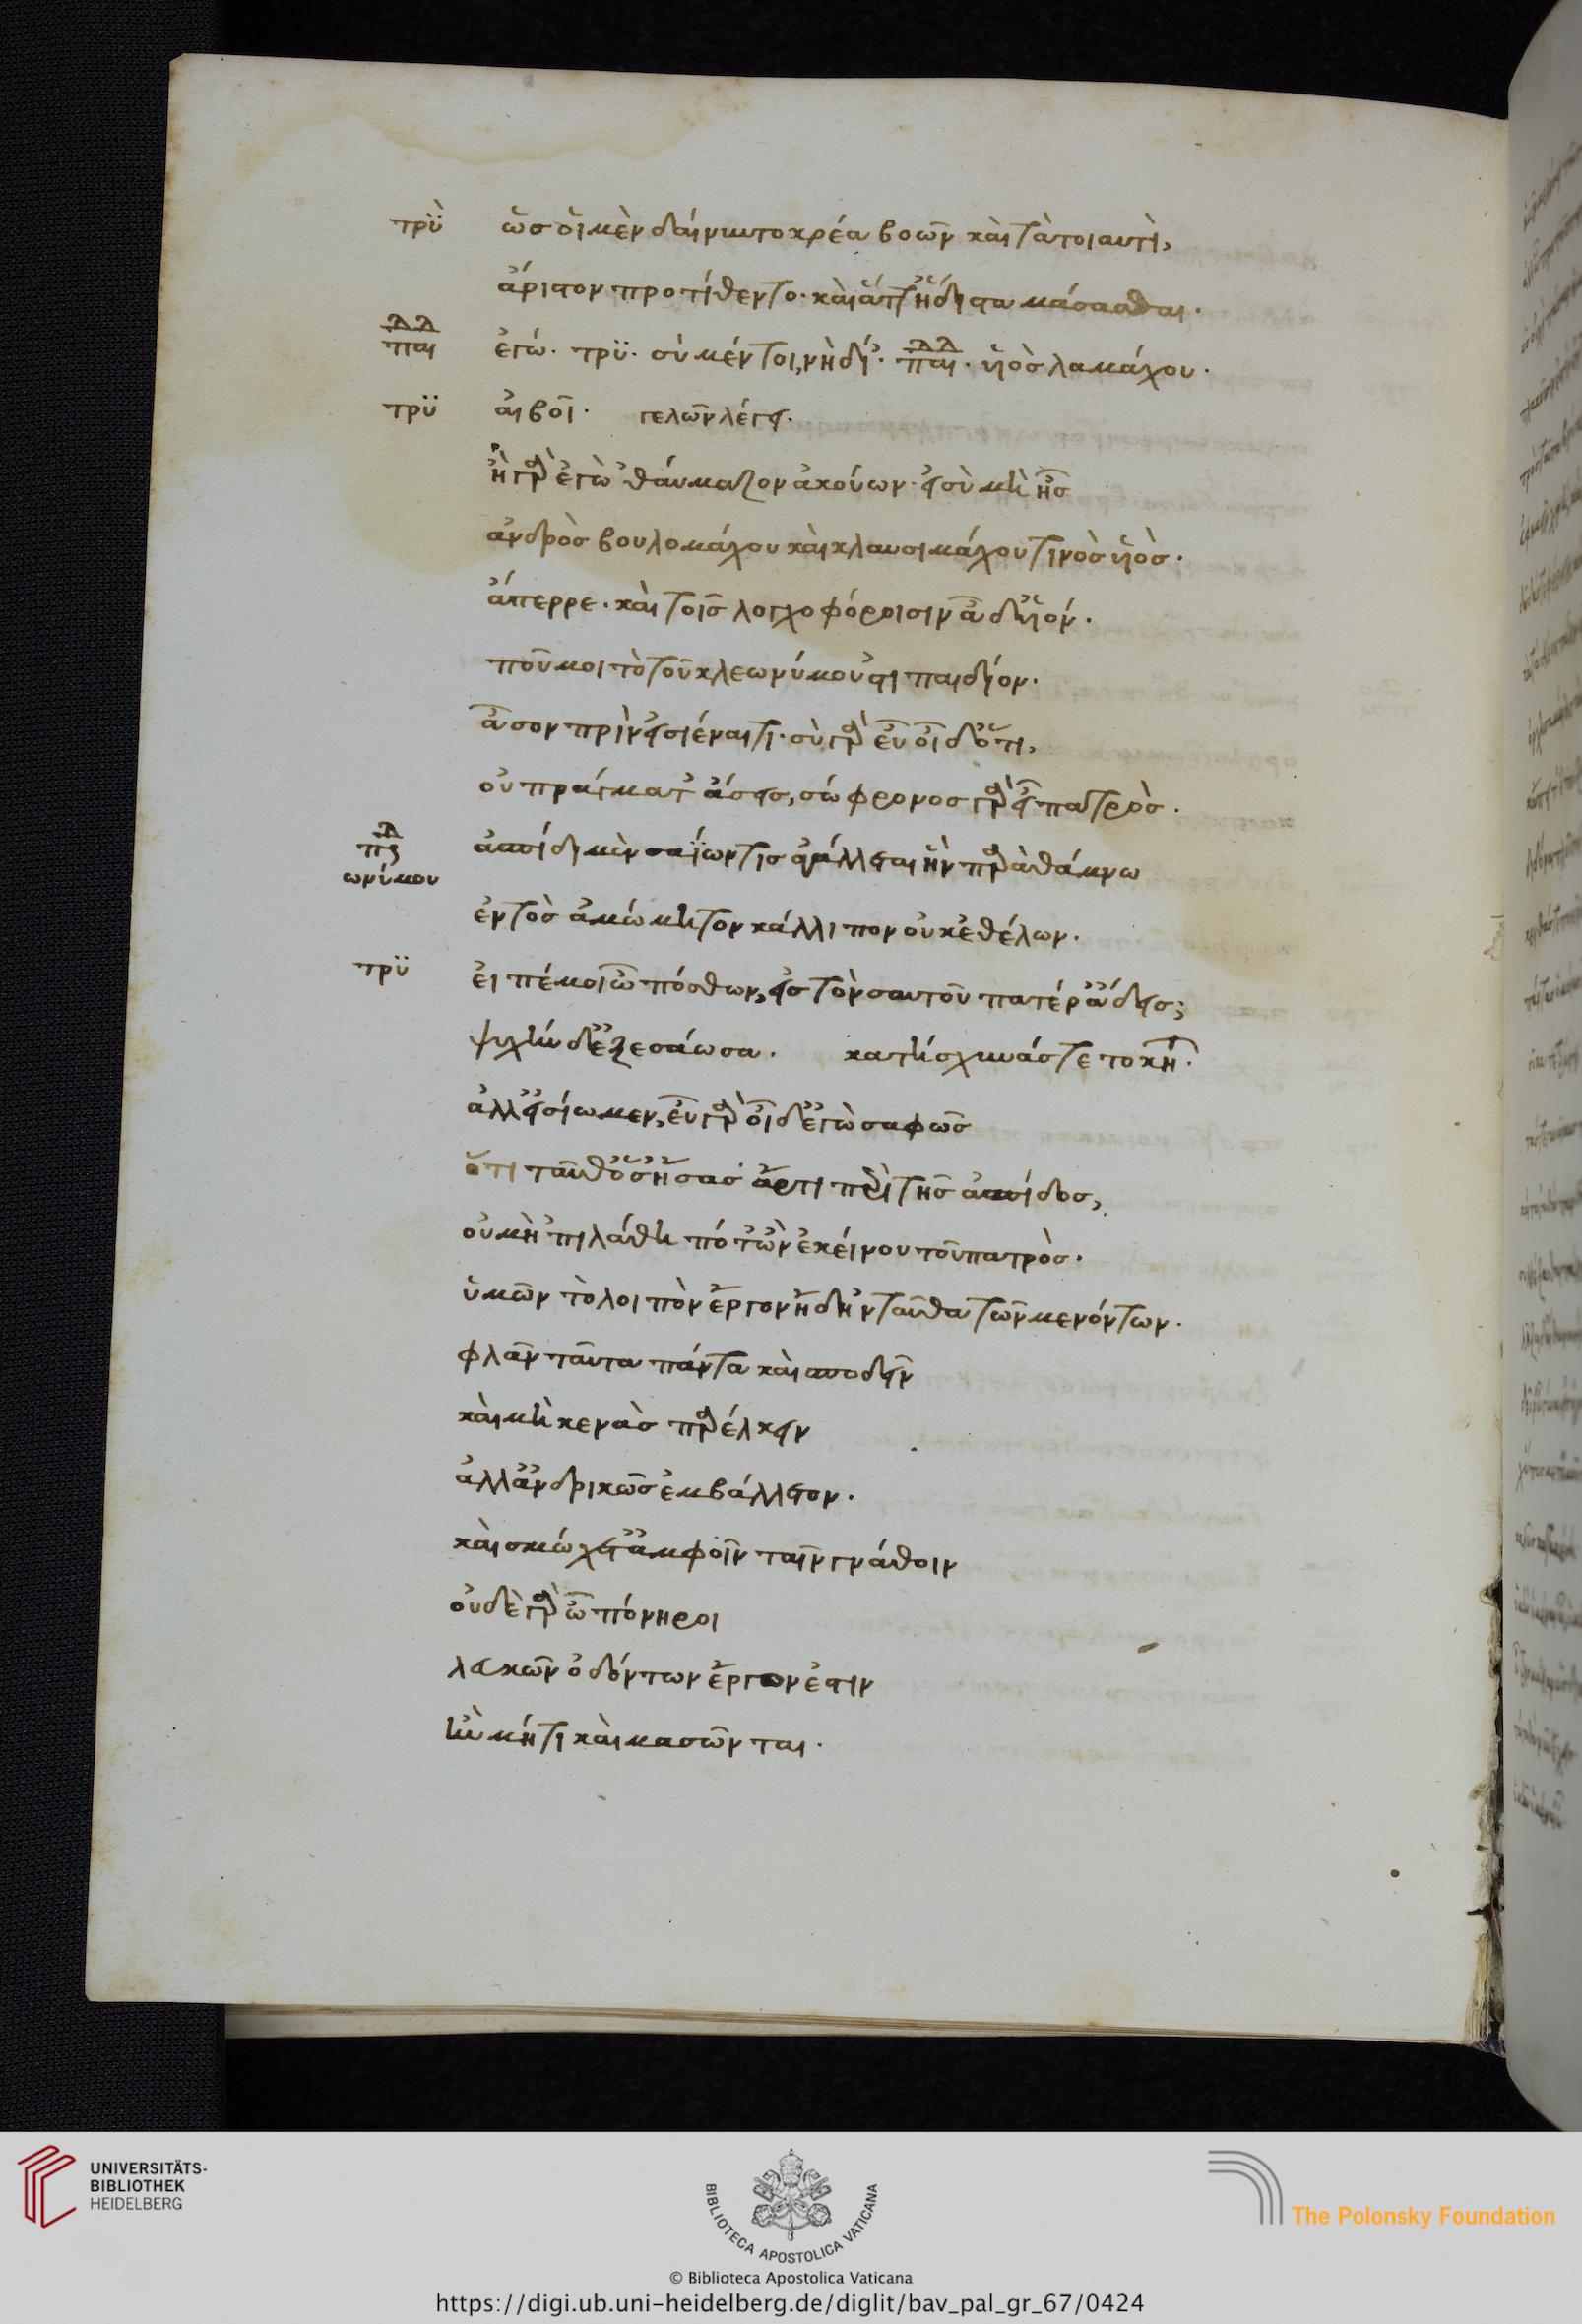 τρϋ ὣς οἱ μὲν δαίνυντο κρέα βοῶν καὶ τὰ τοιαυτὶ,
ἄριστον προτίθεντο· καὶ ἅτθ' ἥδιστα μάσασθαι.
παι ἐγώ· τρϋ· σὺ μέντοι, νὴ δί'· παι· ὑιὸς λαμάχου.
τρϋ αἰβοῖ· γελῶν λέγει.
ἦ γὰρ ἐγὼ θαύμαζον ἀκούων· εἰ σὺ μὴ εἴης
ἀνδρὸς βουλομάχου καὶ κλαυσιμάχου τινὸς ὑιὸς.
ἄπερρε· καὶ τοῖς λογχοφόροισιν ᾆδ' ἰών.
ποῦ μοι τὸ τοῦ κλεωνύμου 'στι παιδίον.
ᾆσον πρὶν εἰσιέναι τι· σὺ γὰρ εὖ οἶδ' ὅτι,
οὐ πράγματ' ἄσεις, σώφρονος γὰρ εἶ πατρὸς.
πς ωνύμου ἀσπίδι μὲν σαΐων τις ἀγάλλεται ἣν παρὰ θάμνω
ἐντὸς ἀμώμητον κάλλιπον οὐκ ἐθέλων.
τρϋ εἰπέ μοι ὦ πόσθων, εἰς τὸν σαυτοῦ πατέρ' ἄδεις;
ψυχὴν δ' ἐξεσάωσα. κατήσχυνας τε τοκῆ.
ἀλλ' εἰσίωμεν, εὖ γὰρ οἶδ' ἐγὼ σαφῶς
ὅτι ταῦθ' ὅσ' ἦσας ἄρτι περὶ τῆς ἀσπίδος,
οὐ μὴ 'πιλάθη πότ' ὢν ἐκείνου τοῦ πατρὸς.
ὑμῶν τὸ λοιπὸν ἔργον ἤδη 'νταῦθα τῶν μενόντων.
φλᾶν ταῦτα πάντα καὶ σποδεῖν
καὶ μὴ κενὰς παρέλκειν
ἀλλ' ἀνδρικῶς ἐμβάλλετον.
καὶ σμώχετ' ἀμφοῖν ταῖν γνάθοιν
οὐδὲν γὰρ ὦ πόνηροι
λευκῶν ὀδόντων ἔργον ἐστιν
ἢν μή τι καὶ μασῶνται.
UNIVERSITÄTS-
BIBLIOTHEK
HEIDELBERG
BIBLIOTECA APOSTOLICA VATICANA
The Polonsky Foundation
© Biblioteca Apostolica Vaticana
https://digi.ub.uni-heidelberg.de/diglit/bav_pal_gr_67/0424